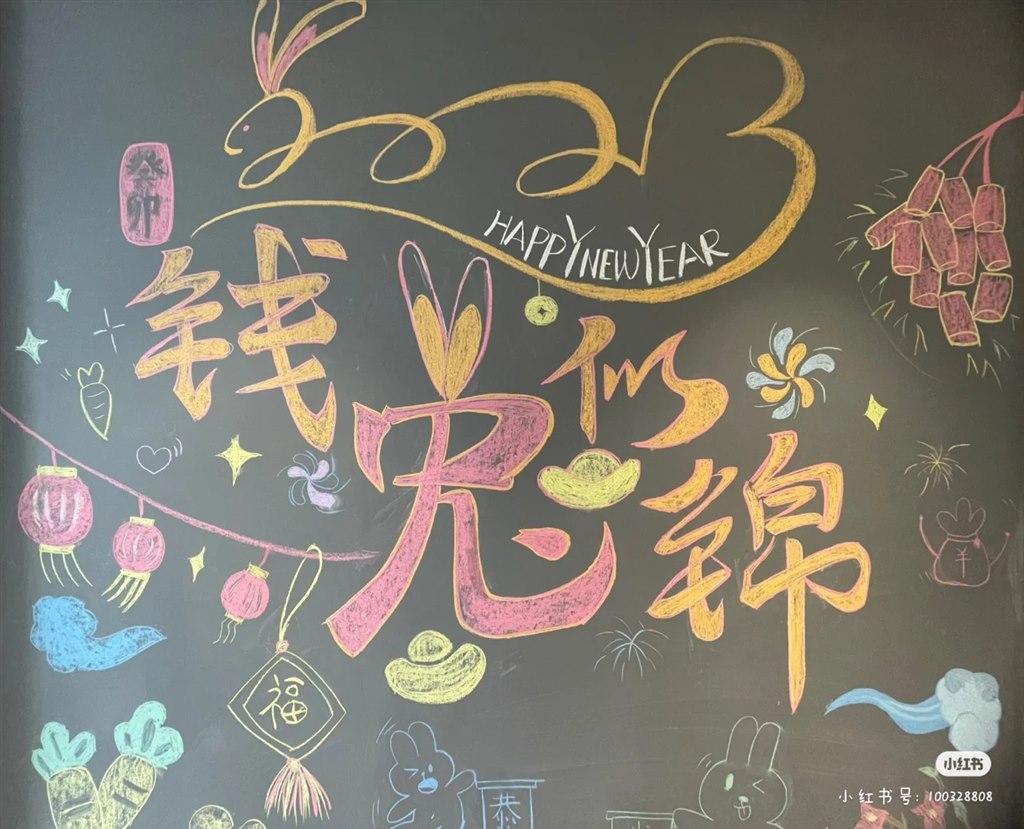 2023
癸卯
HAPPY NEW YEAR
钱兔似锦
福
恭
小红书
小红书号：100328808